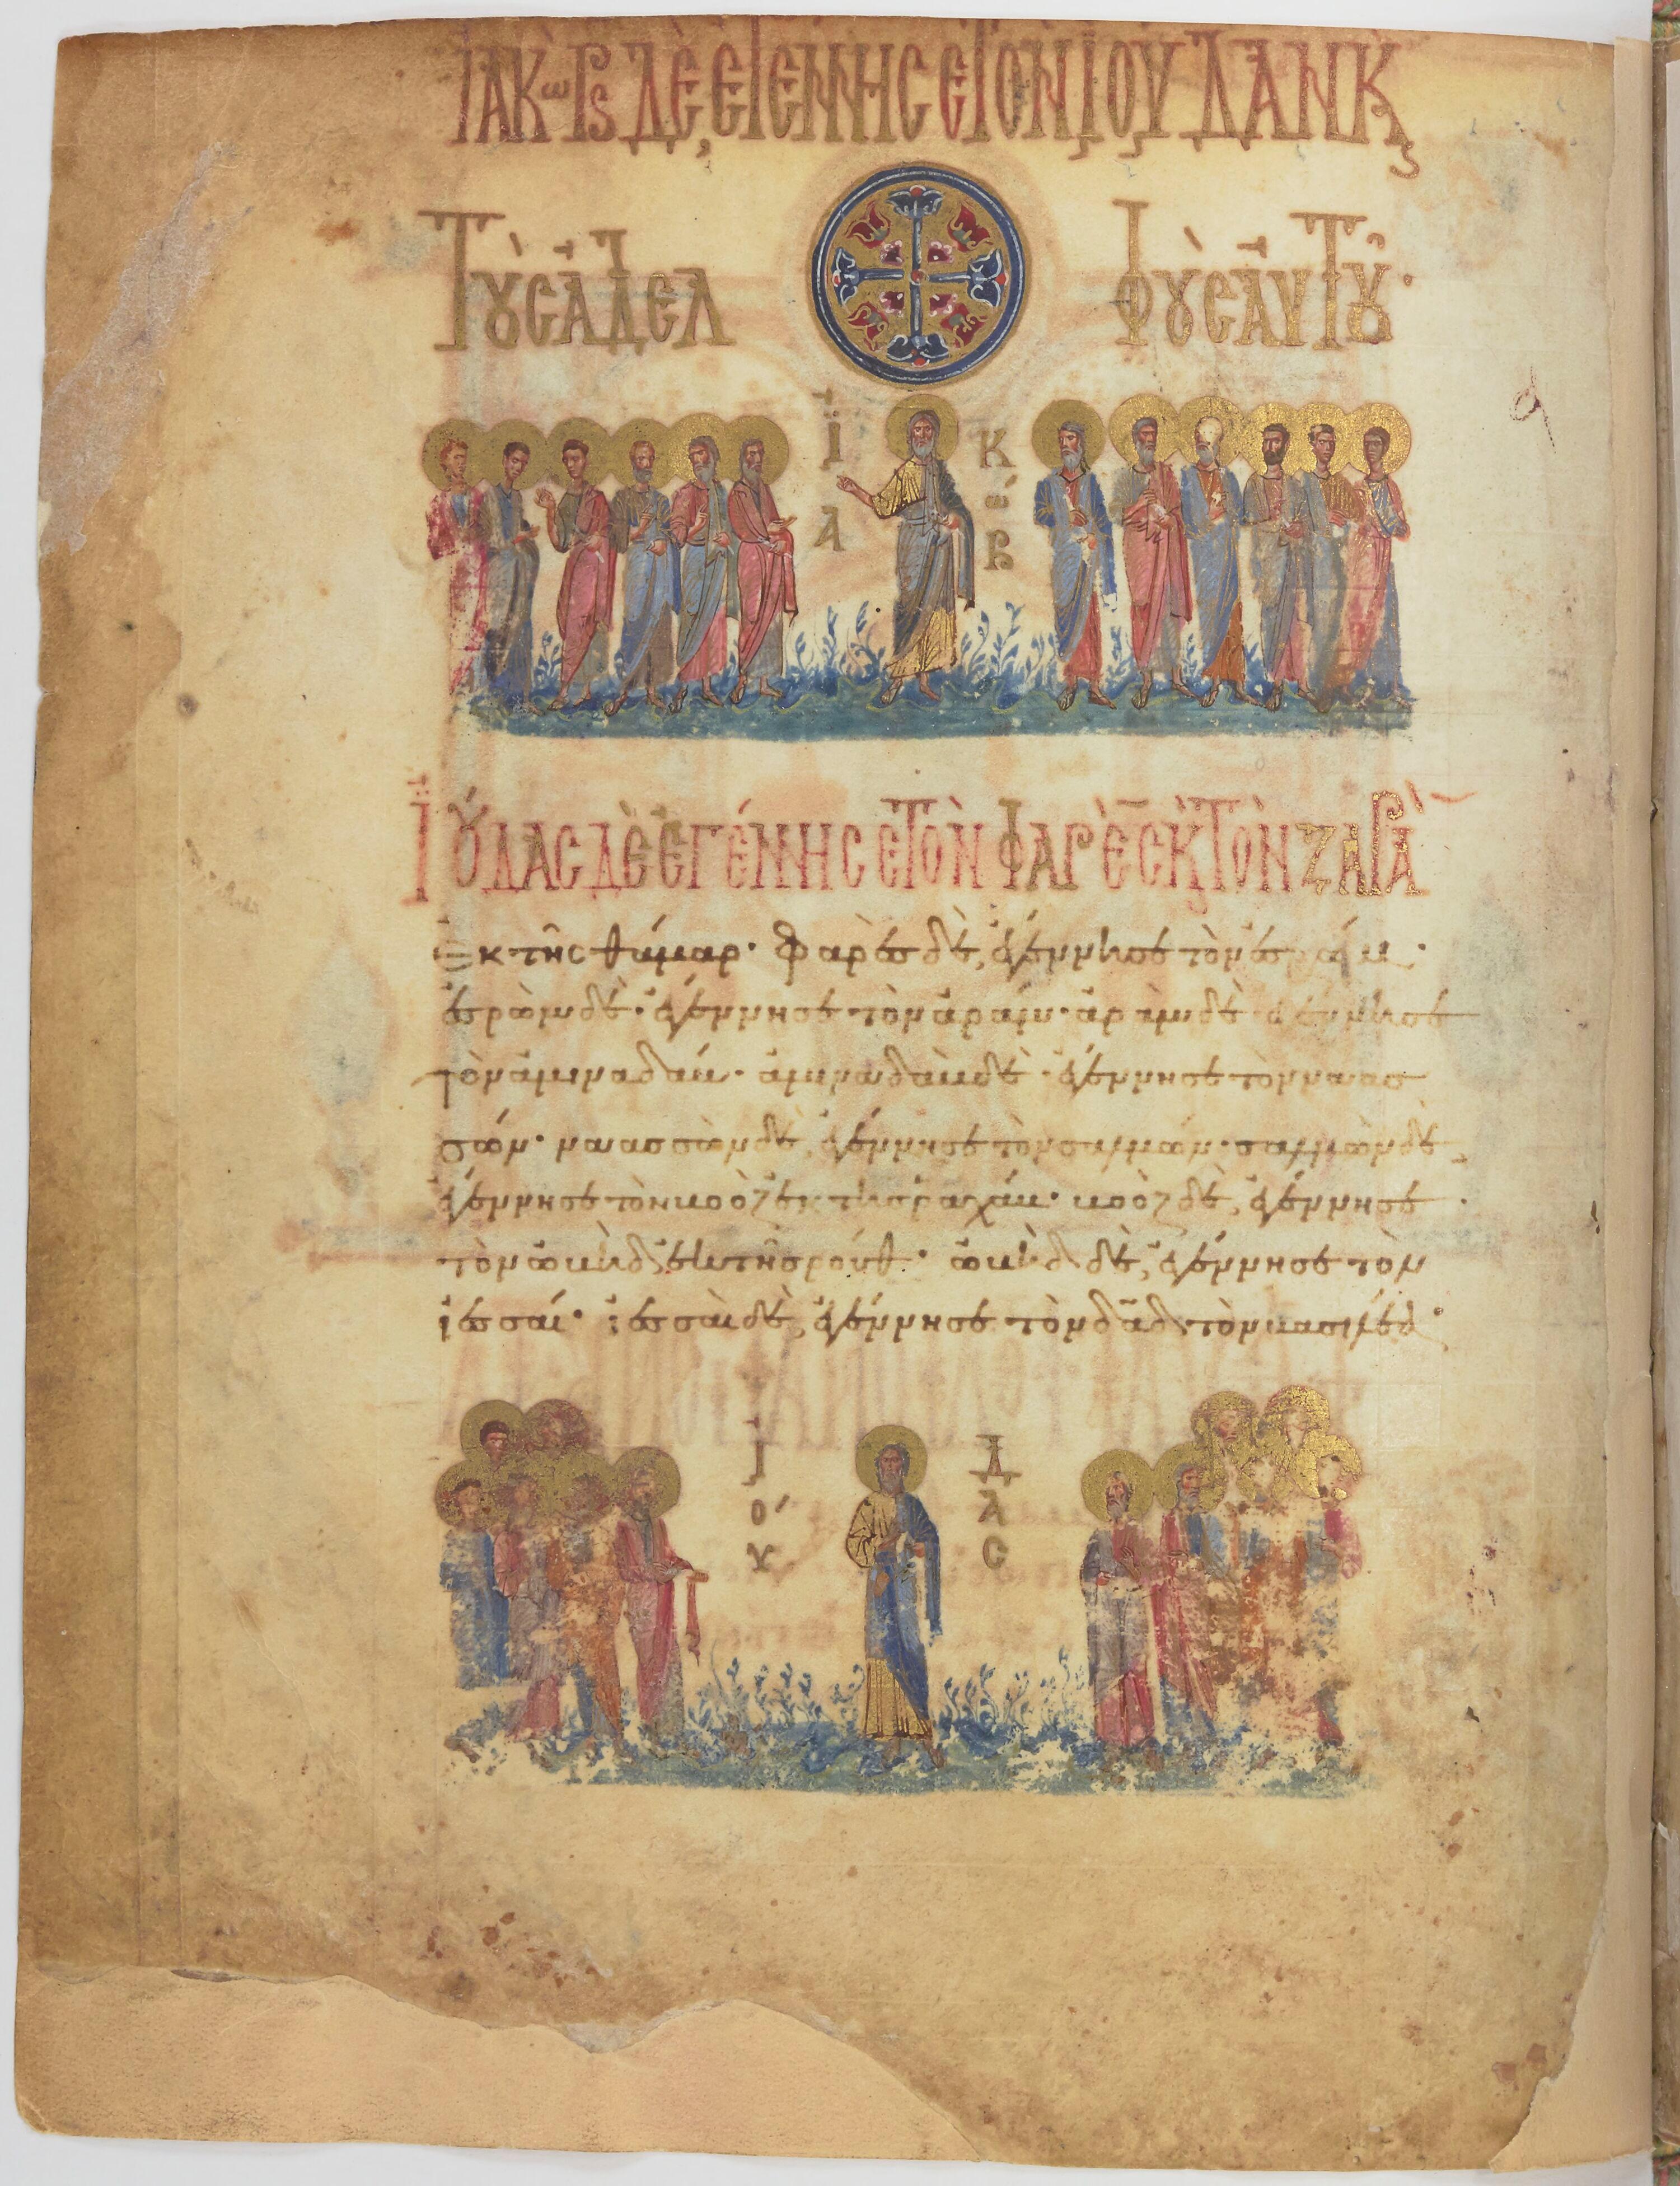 ΙΑΚωΒς ΔῈ ΕΓΕΝΝΗΣΕ ΤΟΝ ΙΟΥΔΑΝ Κς
ΤȢ̀Σ ἈΔΕΛ
ΦȢ̀Σ ΑΥΤȢ͂·
Ϊ Α Κ ώ Β
ἸΟΎΔΑΣ ΔῈ ἘΓΈΝΝΗΣΕ ΤῸΝ ΦΑΡῈΣ Κς ΤῸΝ ΖΑΡᾺ
Ἐκ τῆς θάμαρ· Φαρὲς δὲ, ἐγέννησε τὸν ἐσρώμ·
ἐσρὼμ δὲ· ἐγέννησε τὸν ἀράμ· ἀρὰμ δὲ ἐγέννησε
τὸν ἀμιναδάβ· ἀμιναδὰβ δὲ· ἐγέννησε τὸν ναασ
σών· ναασσὼν δὲ, ἐγέννησε τὸν σαλμών· σαλμὼν δὲ,
ἐγέννησε τὸν βοὸζ ἐκ τῆς ῥαχάβ· βοὸζ δὲ, ἐγέννησε
τὸν ὠβὴδ ἐκ τῆς ρούθ· ὠβὴδ δὲ, ἐγέννησε τὸν
ἰεσσαί· ἰεσσαὶ δὲ, ἐγέννησε τὸν δᾱδ τὸν βασιλέα·
Ἰ ού Δ Α Σ